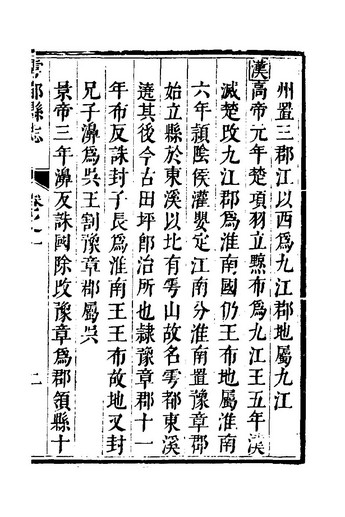 州置三郡江以西爲九江郡地屬九江
漢高帝元年楚項羽立黥布爲九江王五年漢
滅楚改九江郡爲淮南國仍王布地屬淮南
六年頴陰侯灌嬰定江南分淮南置豫章郡
始立縣於東溪以北有雩山故名雩都東溪
遶其後今古田坪郎治所也隷豫章郡十一
年布反誅封子長爲淮南王王布故地又封
兄子濞爲吳王割豫章郡屬吳
景帝三年濞反誅國除改豫章爲郡領縣十
雩都縣志
卷之一
二